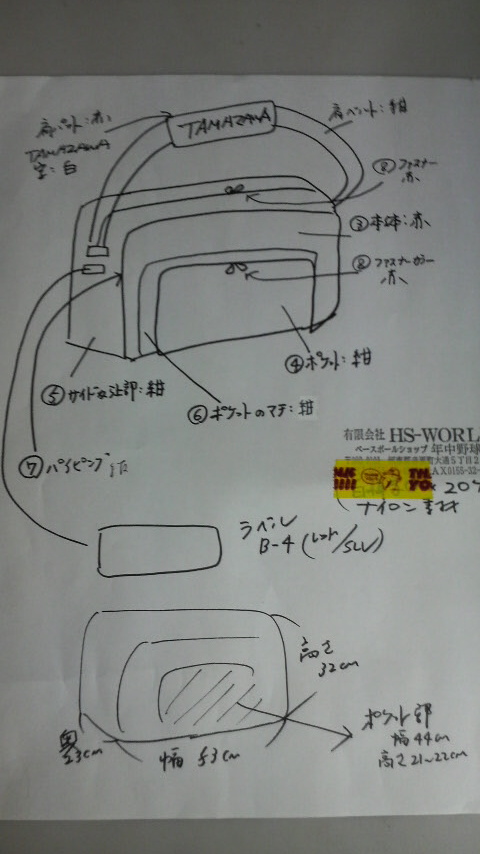 肩パット:赤
TAMAZAWA
字:白
TAMAZAWA
肩ベルト:紺
②ファスナー
赤
③本体:赤
②ファスナーカラー
赤
④ポケット:紺
⑤サイド及び上部:紺
⑥ポケットのマチ:紺
⑦パイピング
有限会社 HS-WORL
ベースボールショップ 年中野球
大通5丁目2
AX0155-32-
ナイロン素材
ラベル
B-4(レッド/SLV)
高さ
32cm
奥
23cm
幅 53cm
ポケット部
幅44cm
高さ21~22cm